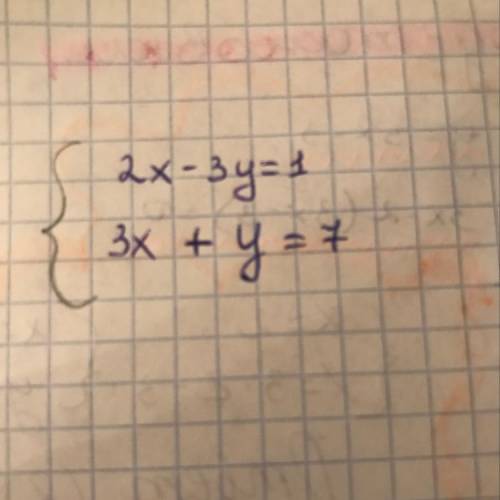 2x - 3y = 1
3x + y = 7